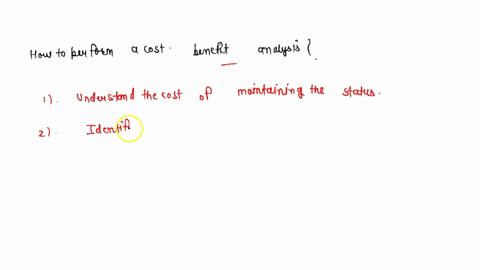 How to perform a cost. benefit analysis {.
1). Understand the cost of maintaining the status.
2). Identif